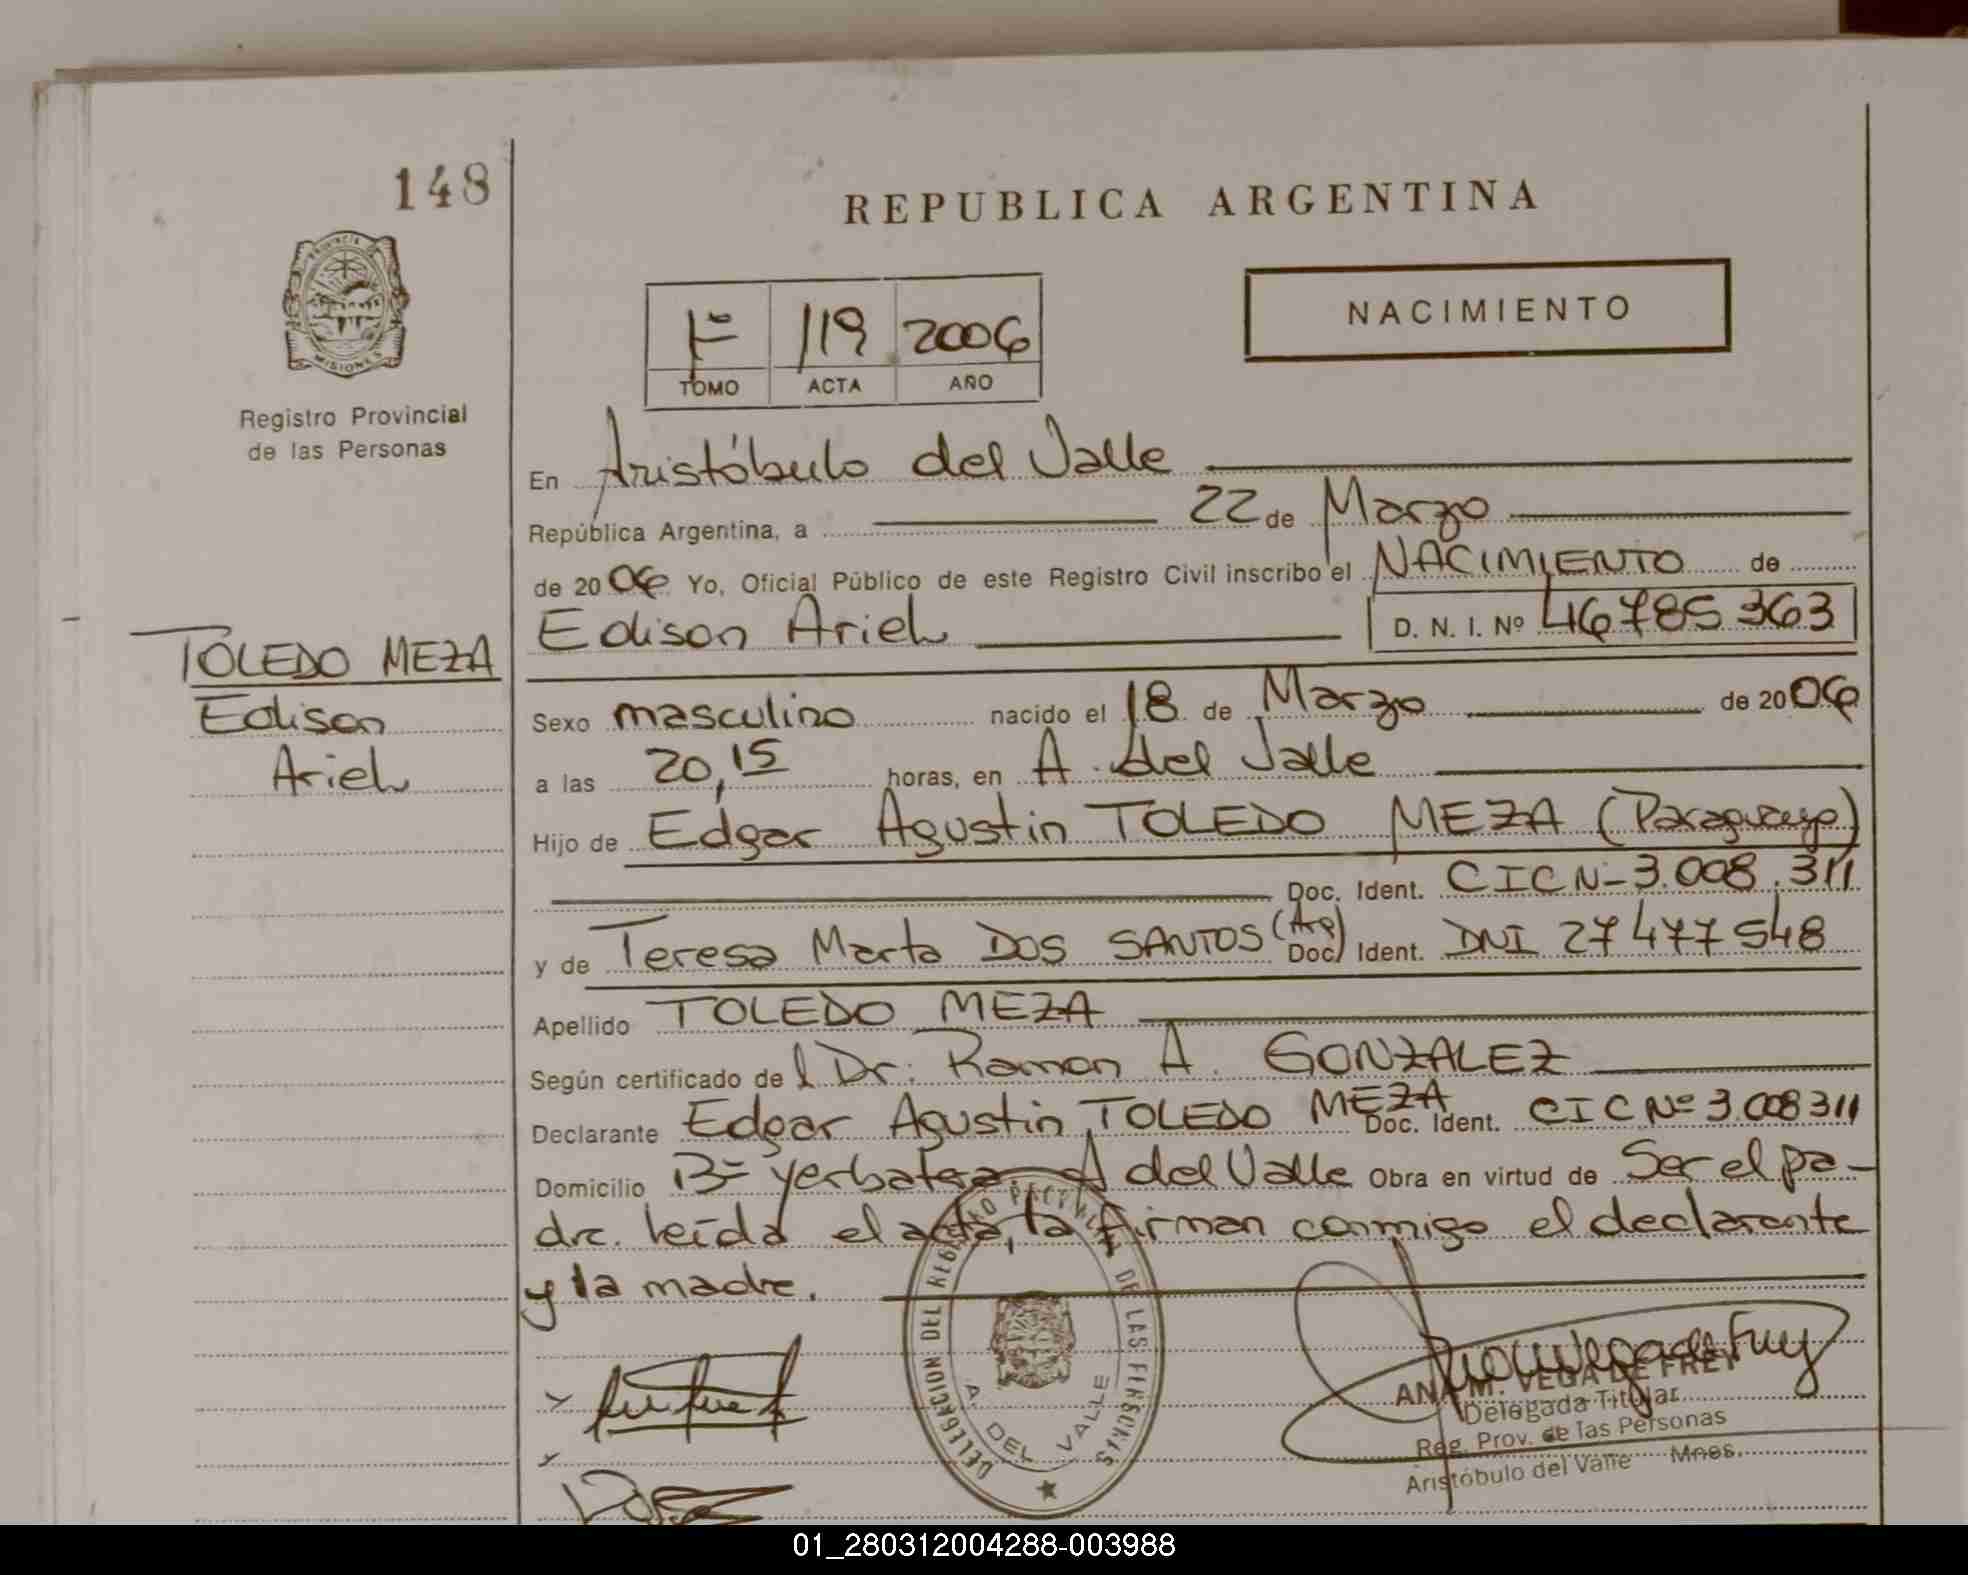 148
REPUBLICA ARGENTINA
PROVINCIA DE
MISIONES
Registro Provincial
de las Personas
1º 119 2006
TOMO ACTA AÑO
NACIMIENTO
En Aristóbulo del Valle
República Argentina, a 22 de Marzo
de 2006 Yo, Oficial Público de este Registro Civil inscribo el NACIMIENTO de
Edison Ariel D. N. I. Nº 46785363
TOLEDO MEZA
Edison
Ariel
Sexo masculino nacido el 18 de Marzo de 2006
a las 20,15 horas, en A. del Valle
Hijo de Edgar Agustin TOLEDO MEZA (Paraguayo)
Doc. Ident. CIC N- 3.008.311
y de Teresa Marta DOS SANTOS (Arg) Doc. Ident. DNI 27477548
Apellido TOLEDO MEZA
Según certificado del Dr. Ramon A. GONZALEZ
Declarante Edgar Agustin TOLEDO MEZA Doc. Ident. CIC Nº 3.008311
Domicilio Bº yerbatera. A del Valle Obra en virtud de Ser el pa-
dre. leída el acta, la firman conmigo el declarante
y la madre.
DELEGACION DEL REGISTRO PROVINCIAL DE LAS PERSONAS
A. DEL VALLE
ANA M. VEGA DE FREY
Delegada Titular
Reg. Prov. de las Personas
Aristóbulo del Valle Mnes.
01_280312004288-003988